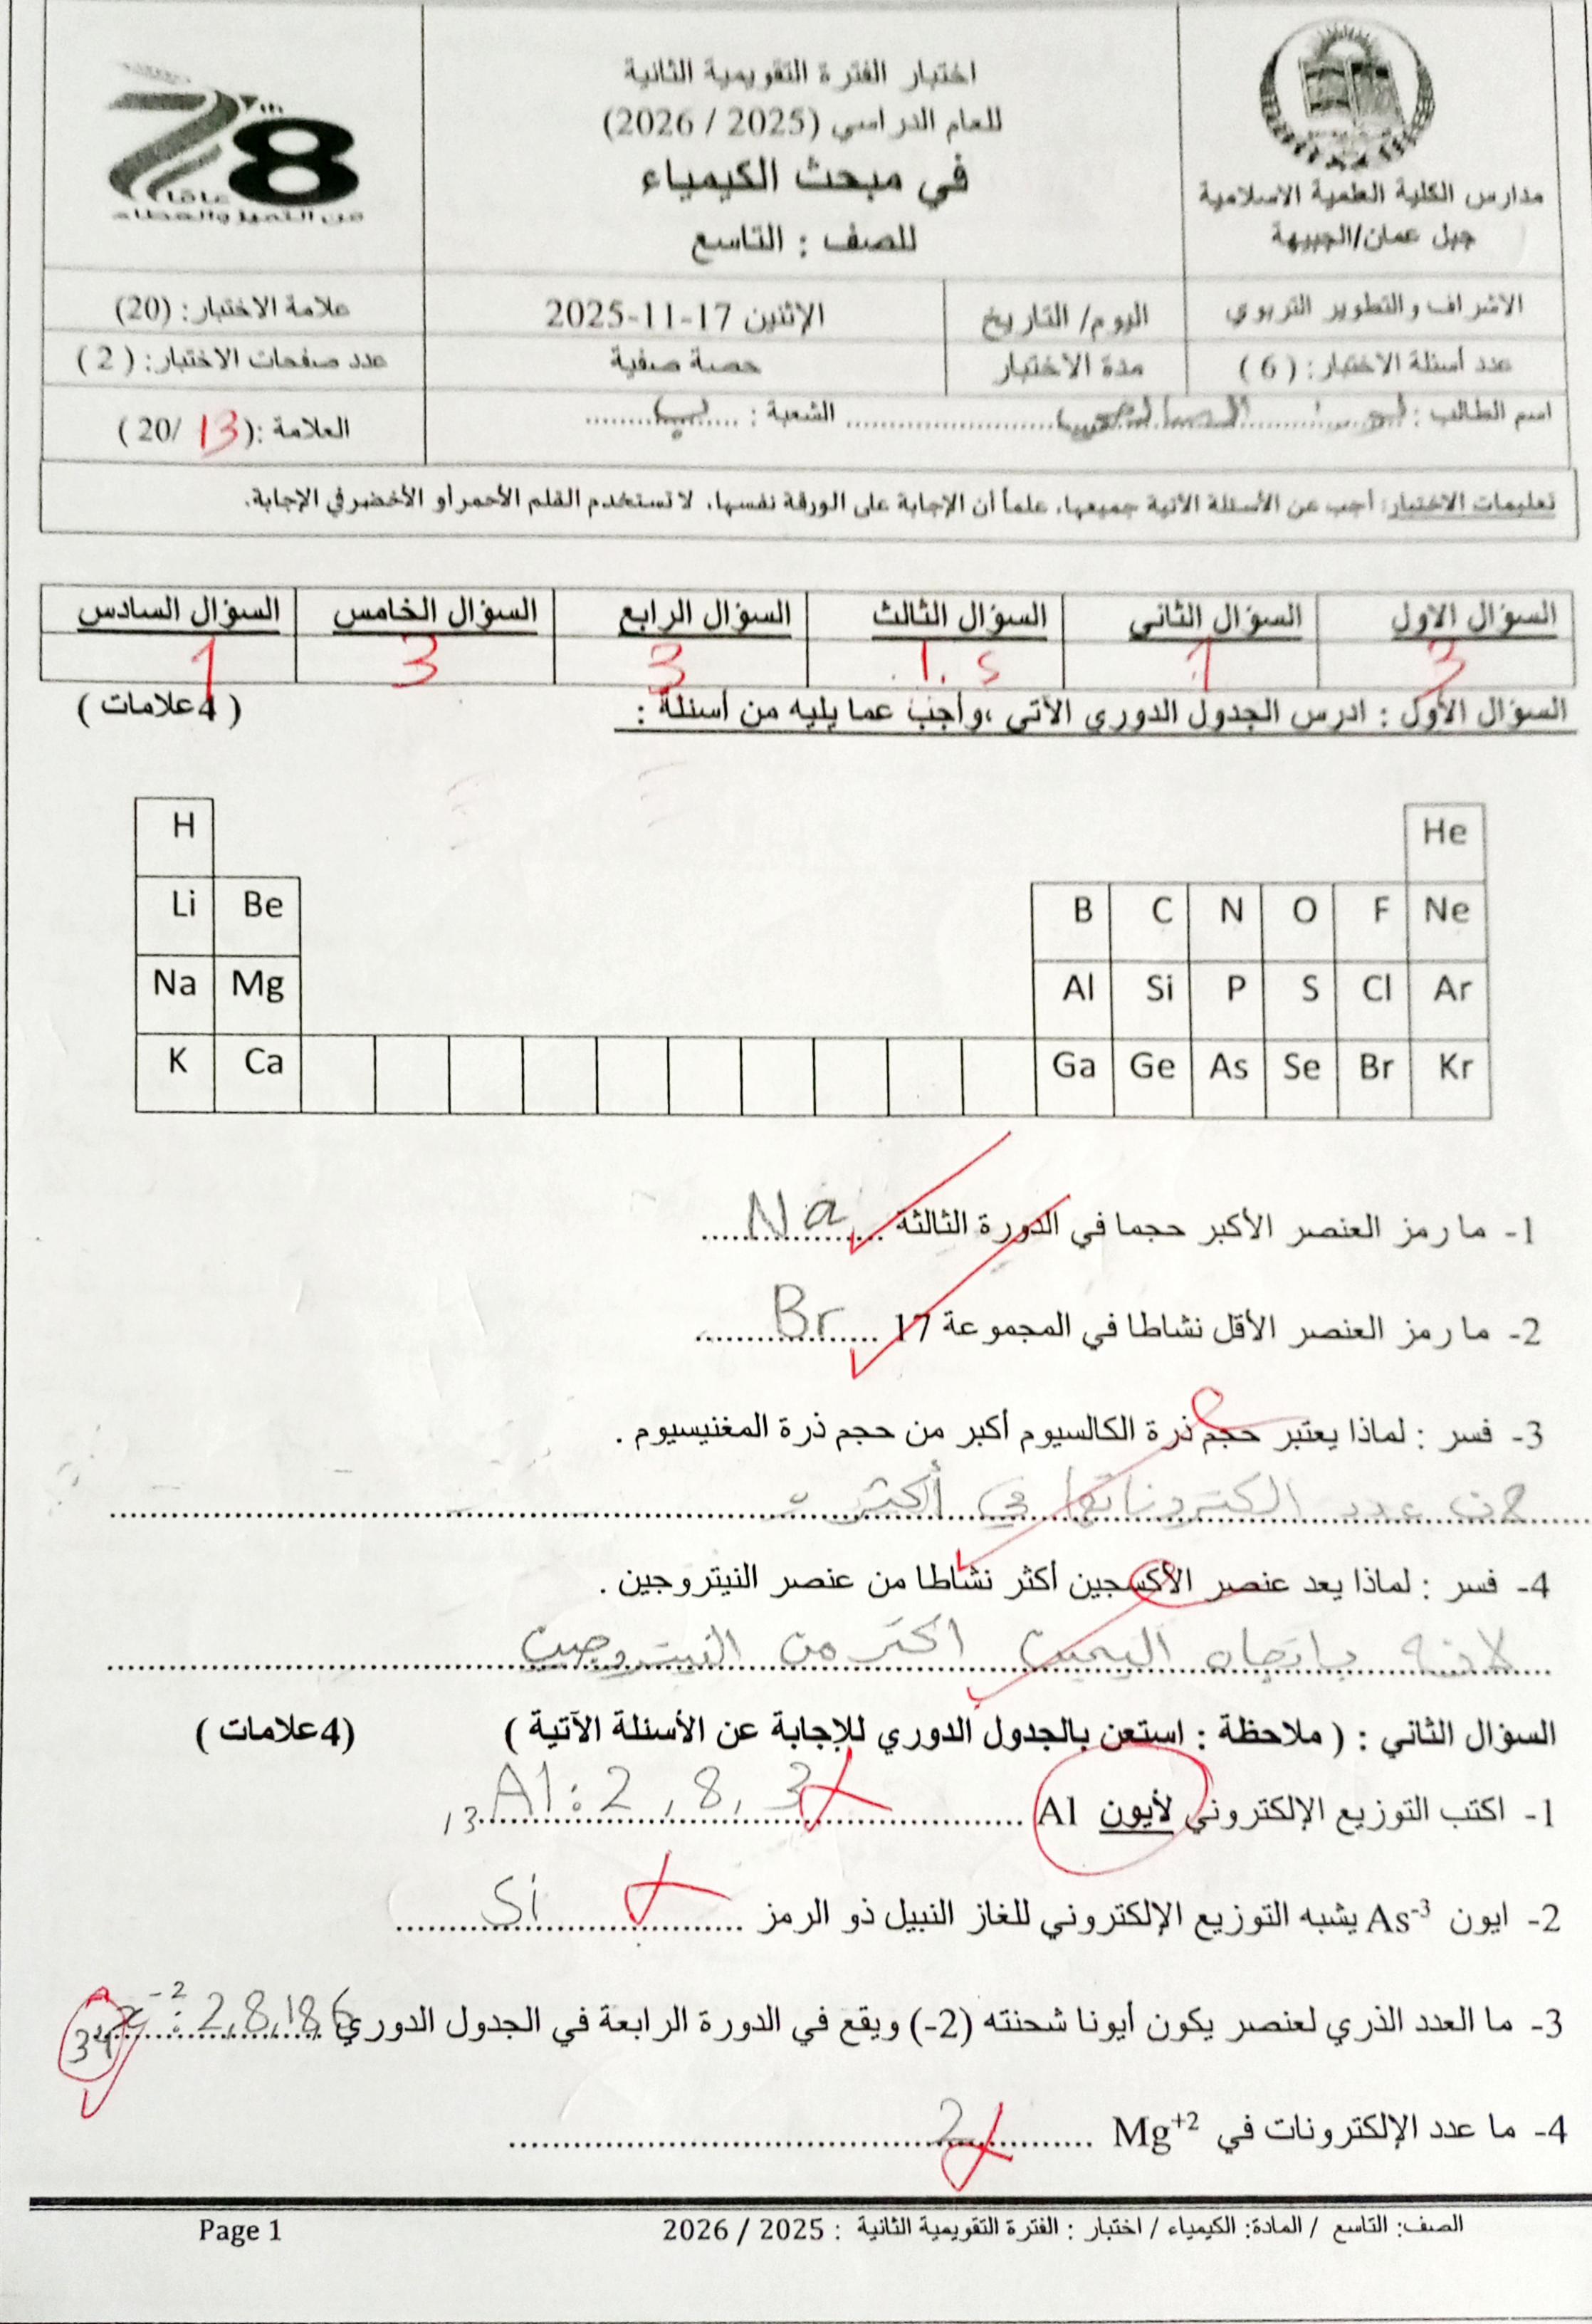 78
عامًا
من التميز والعطاء
اختبار الفترة التقويمية الثانية
للعام الدراسي (2025 / 2026)
في مبحث الكيمياء
للصف : التاسع
مدارس الكلية العلمية الاسلامية
جبل عمان/الجبيهة
الاشراف والتطوير التربوي
اليوم/ التاريخ
الإثنين 17-11-2025
علامة الاختبار: (20)
عدد أسئلة الاختبار: ( 6 )
مدة الاختبار
حصة صفية
عدد صفحات الاختبار: ( 2 )
اسم الطالب : الشعبة : ب
العلامة :( 13 /20 )
تعليمات الاختبار: أجب عن الأسئلة الآتية جميعها، علماً أن الإجابة على الورقة نفسها، لا تستخدم القلم الأحمر أو الأخضر في الإجابة.
السؤال الاول السؤال الثاني السؤال الثالث السؤال الرابع السؤال الخامس السؤال السادس
3 1 1.5 3 3 1
السؤال الأول : ادرس الجدول الدوري الآتي ،وأجب عما يليه من أسئلة : ( 4علامات )
H He
Li Be B C N O F Ne
Na Mg Al Si P S Cl Ar
K Ca Ga Ge As Se Br Kr
1- ما رمز العنصر الأكبر حجما في الدورة الثالثة Na
2- ما رمز العنصر الأقل نشاطا في المجموعة 17 Br
3- فسر : لماذا يعتبر حجم ذرة الكالسيوم أكبر من حجم ذرة المغنيسيوم .
عدد الكتروناتها في أكثر
4- فسر : لماذا يعد عنصر الأكسجين أكثر نشاطا من عنصر النيتروجين .
لانه باتجاه اليمين اكثر من النيتروجين
السؤال الثاني : ( ملاحظة : استعن بالجدول الدوري للإجابة عن الأسئلة الآتية ) (4علامات )
1- اكتب التوزيع الإلكتروني لأيون Al 13Al: 2, 8, 3
2- ايون As-3 يشبه التوزيع الإلكتروني للغاز النبيل ذو الرمز Si
3- ما العدد الذري لعنصر يكون أيونا شحنته (2-) ويقع في الدورة الرابعة في الجدول الدوري -2 : 2,8,18,6
34
4- ما عدد الإلكترونات في Mg+2 2
الصف: التاسع / المادة: الكيمياء / اختبار : الفترة التقويمية الثانية : 2025 / 2026 Page 1